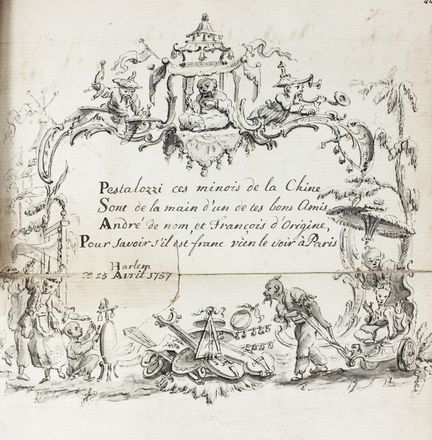 Pestalozzi ces minois de la Chine
Sont de la main d'un de tes bons Amis
André de nom, et François d'Origine,
Pour Savoir s'il est franc vien le voir à Paris
Harlem
25 Avril 1757